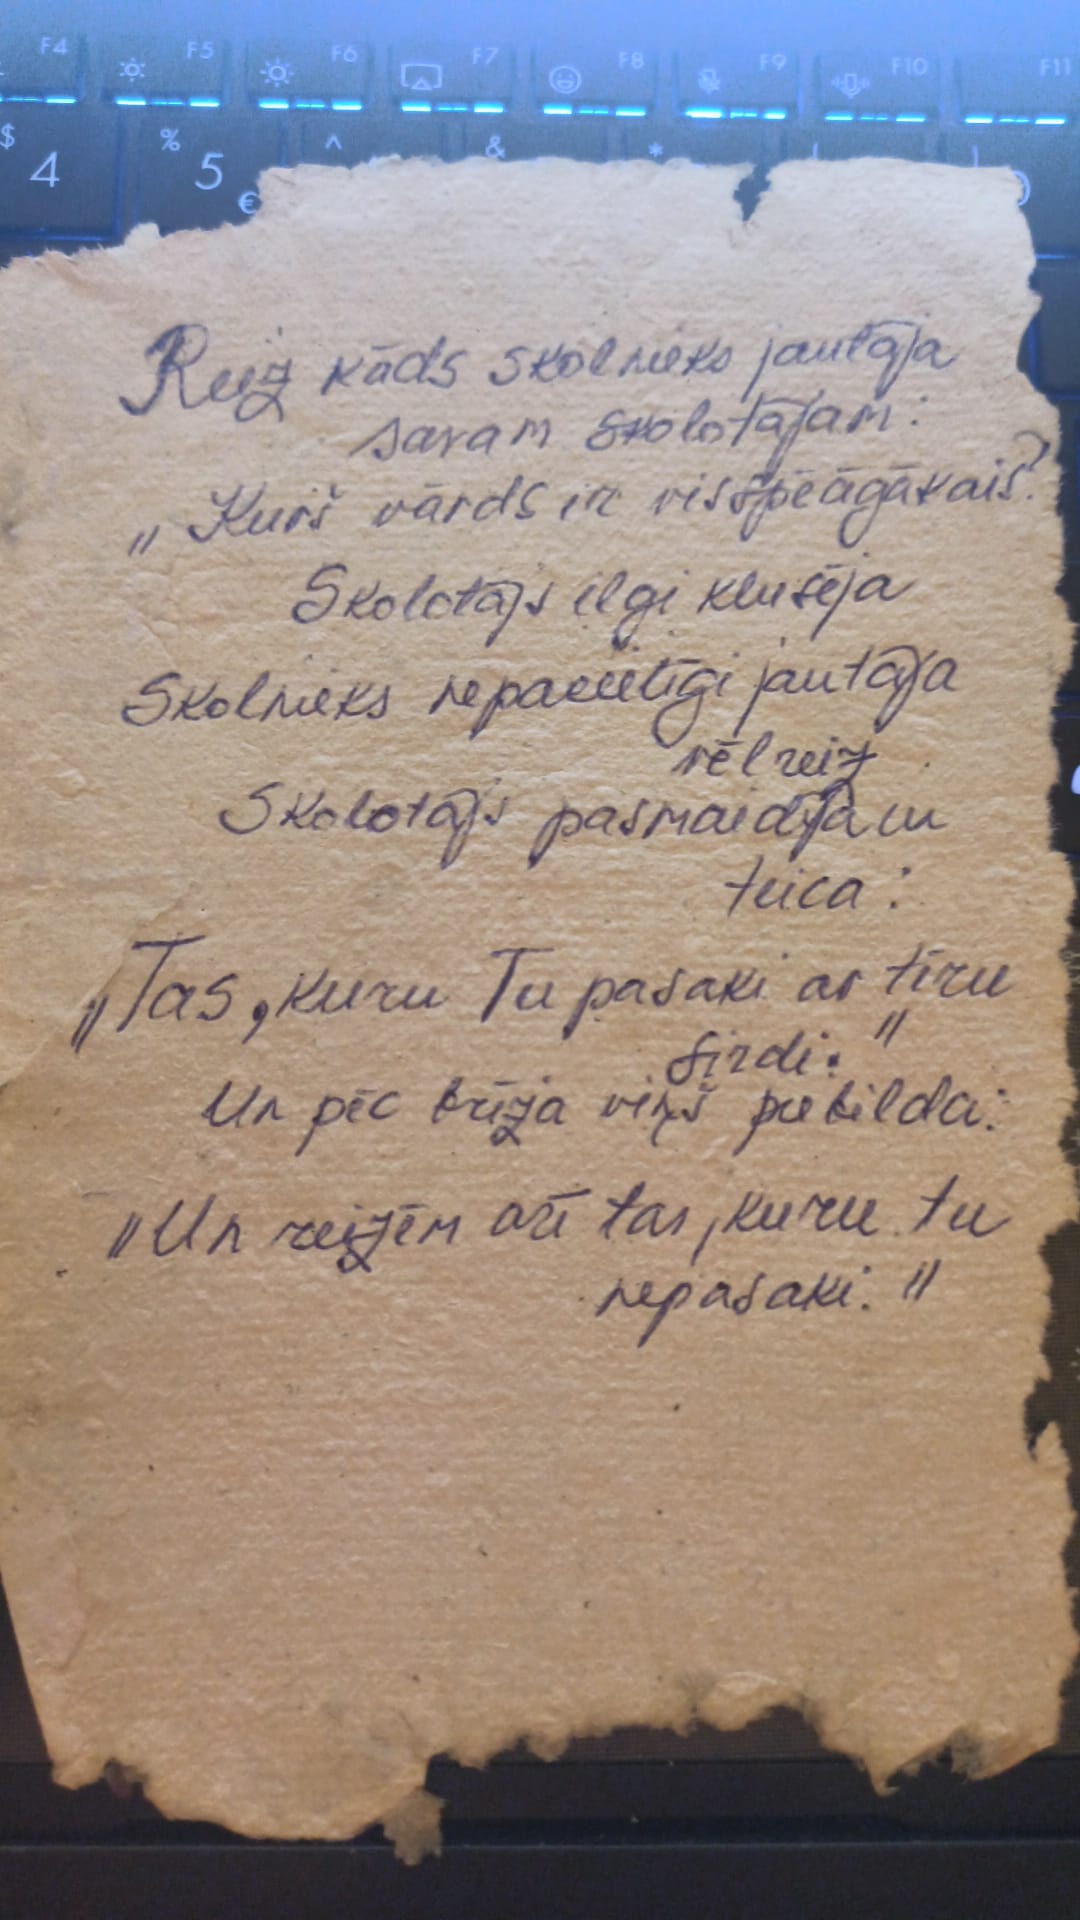 F4 F5 F6 F7 F8 F9 F10 F11
$ 4 % 5 € ^ & * ( )
Reiz kāds skolnieks jautāja
savam skolotājam:
„Kurš vārds ir visspēcīgākais?
Skolotājs ilgi klusēja
Skolnieks nepacietīgi jautāja
vēlreiz
Skolotājs pasmaidīja un
teica:
„Tas, kuru Tu pasaki ar tīru
sirdi."
Un pēc brīža viņš piebilda:
„Un reizēm arī tas, kuru tu
nepasaki."